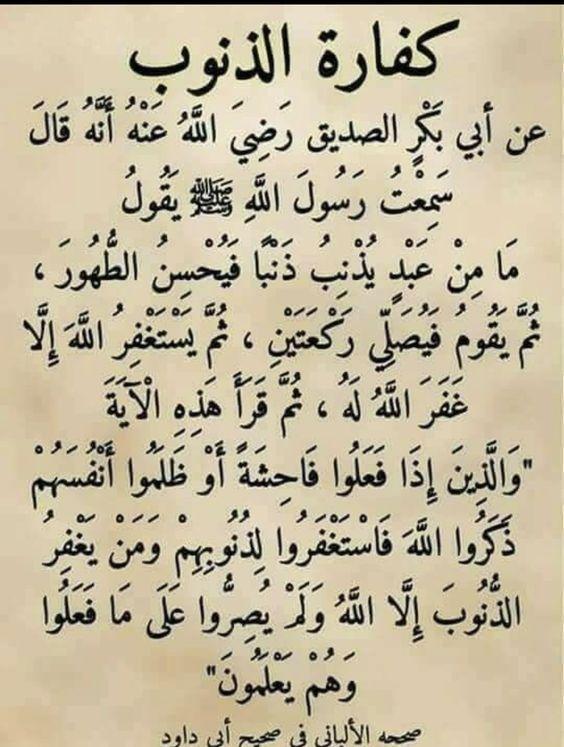 كفارة الذنوب
عن أبي بَكْرٍ الصديق رَضِيَ اللَّهُ عَنْهُ أَنَّهُ قَالَ
سَمِعْتُ رَسُولَ اللَّهِ ﷺ يَقُولُ
مَا مِنْ عَبْدٍ يُذْنِبُ ذَنْبًا فَيُحْسِنُ الطُّهُورَ ،
ثُمَّ يَقُومُ فَيُصَلِّي رَكْعَتَيْنِ ، ثُمَّ يَسْتَغْفِرُ اللَّهَ إِلَّا
غَفَرَ اللَّهُ لَهُ ، ثُمَّ قَرَأَ هَذِهِ الْآيَةَ
"وَالَّذِينَ إِذَا فَعَلُوا فَاحِشَةً أَوْ ظَلَمُوا أَنْفُسَهُمْ
ذَكَرُوا اللَّهَ فَاسْتَغْفَرُوا لِذُنُوبِهِمْ وَمَنْ يَغْفِرُ
الذُّنُوبَ إِلَّا اللَّهُ وَلَمْ يُصِرُّوا عَلَى مَا فَعَلُوا
وَهُمْ يَعْلَمُونَ"
صححه الألباني في صحيح أبي داود